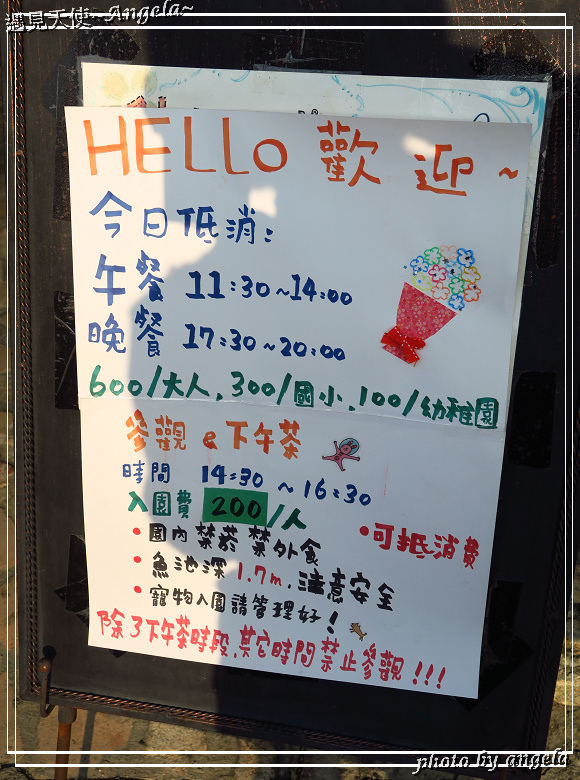 遇見天使~Angela~
HELLo 歡迎~
今日低消:
午餐 11:30~14:00
晚餐 17:30~20:00
600/大人,300/國小,100/幼稚園
參觀 & 下午茶
時間 14:30~16:30
入園費 200/人
•可抵消費
•園內禁菸禁外食
•魚池深1.7m,注意安全
•寵物入園請管理好!
除了下午茶時段,其它時間禁止參觀!!!
photo by angela